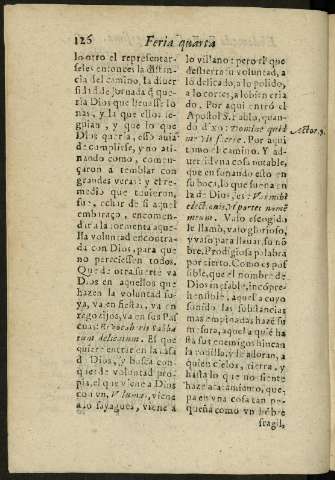 126 Feria quarta
lo otro el representar-
seles entonces la distan-
cia del camino, la diuer
sidad de jornada q̃ que-
ria Dios que lleuasse Io
nas, y la que ellos se-
guian, y que lo que
Dios queria, esso auia
de cumplirse, y no ati-
nando como, comen-
çaron a temblar con
grandes veras: y el re-
medio que tuuieron,
fue, echar de si aquel
embaraço, encomen-
dir a la tormenta aque-
lla voluntad encontra-
da con Dios, para que
no pereciessen todos.
Que de otra suerte va
Dios en aquellos que
hazen la voluntad su-
ya, va en fiestas, va en
regozijos, va en sus Pas
cuas: Et vocaberis Sabba
tum delicatum. El que
quiere entrar en la casa
d̃ Dios, y busca con-
que de voluntad pro-
pia, el que viene a Dios
con vn, Volumus, viene
a lo sayagues, viene a
lo villano: pero el que
destierra su voluntad, a
lo delicado, a lo polido,
a lo cortes, a lo bien cria
do. Por aqui entrò el
Apostol S. Pablo, quan-
do dixo: Domine quid
me vis facere. Por aqui
tomo el camino. Y ad-
uertid vna cosa notable,
que en sonando esso en
su boca, lo que suena en
la d̃ Dios, es: Vt mihi
electionis, vt portet nomẽ
meum. Vaso escogido
le llamò, vaso glorioso,
y vaso para lleuar, su nõ
bre. Prodigiosa palabra
por cierto. Como es pos
sible, que el nombre de
Dios inefable, incõpre-
hensible, aquel a cuyo
sonido las substancias
mas empinadas hazē su
mesura, aquel a quien hã
sta sus enemigos hincan
la rodilla, y le adoran, a
quien cielos, tierra, y
hasta lo que no siente
haze acatamiento, que-
pa en vna cosa tan pe-
queña como vn hõbre
fragil,
Actor. 9.